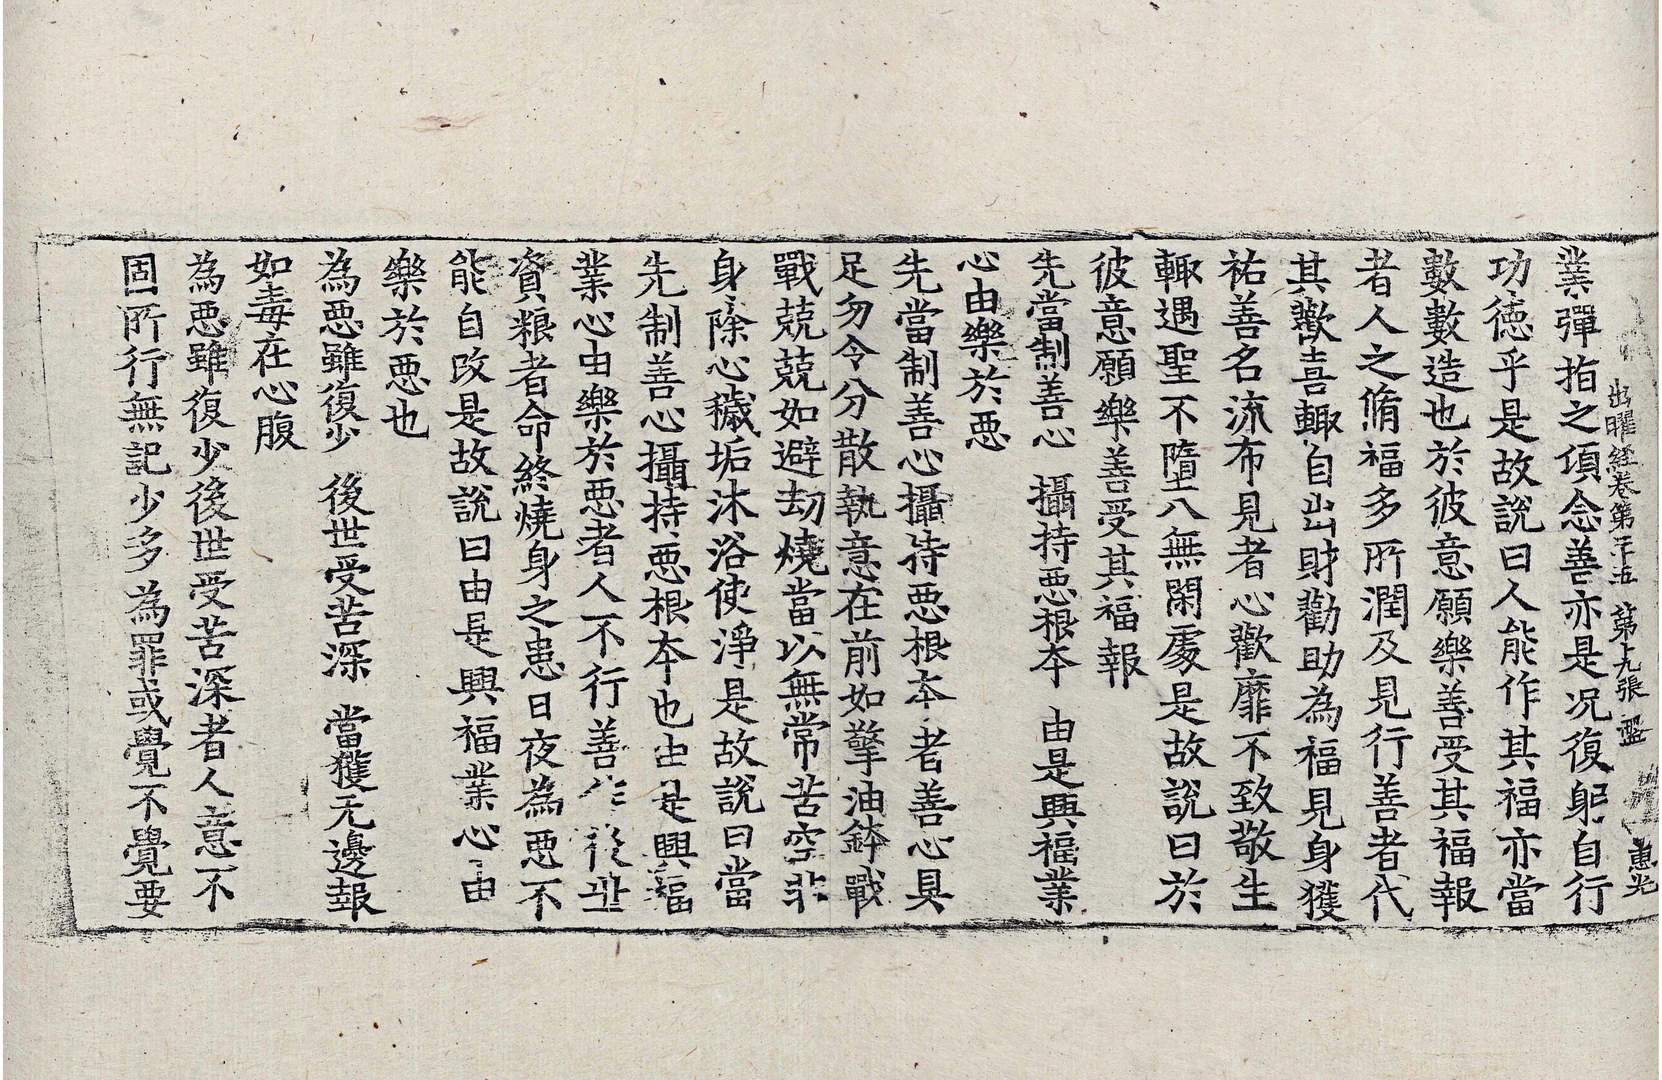 出曜経卷第二十五 第九張 盈 惠光
業彈指之頃念善亦是况復躬自行
功徳乎是故說曰人能作其福亦當
數數造也於彼意願樂善受其福報
者人之脩福多所潤及見行善者代
其歡喜輙自出財勸助為福見身獲
祐善名流布見者心歡靡不致敬生
輙遇聖不墮八無閑處是故說曰於
彼意願樂善受其福報
先當制善心 攝持惡根本 由是興福業
心由樂於惡
先當制善心攝持惡根本者善心具
足勿令分散執意在前如擎油鉢戰
戰兢兢如避劫燒當以無常苦空非
身除心穢垢沐浴使淨是故說曰當
先制善心攝持惡根本也由是興福
業心由樂於惡者人不行善作後世
資粮者命終燒身之患日夜為惡不
能自改是故說曰由是興福業心由
樂於惡也
為惡雖復少 後世受苦深 當獲无邊報
如毒在心腹
為惡雖復少後世受苦深者人意不
固所行無記少多為罪或覺不覺要